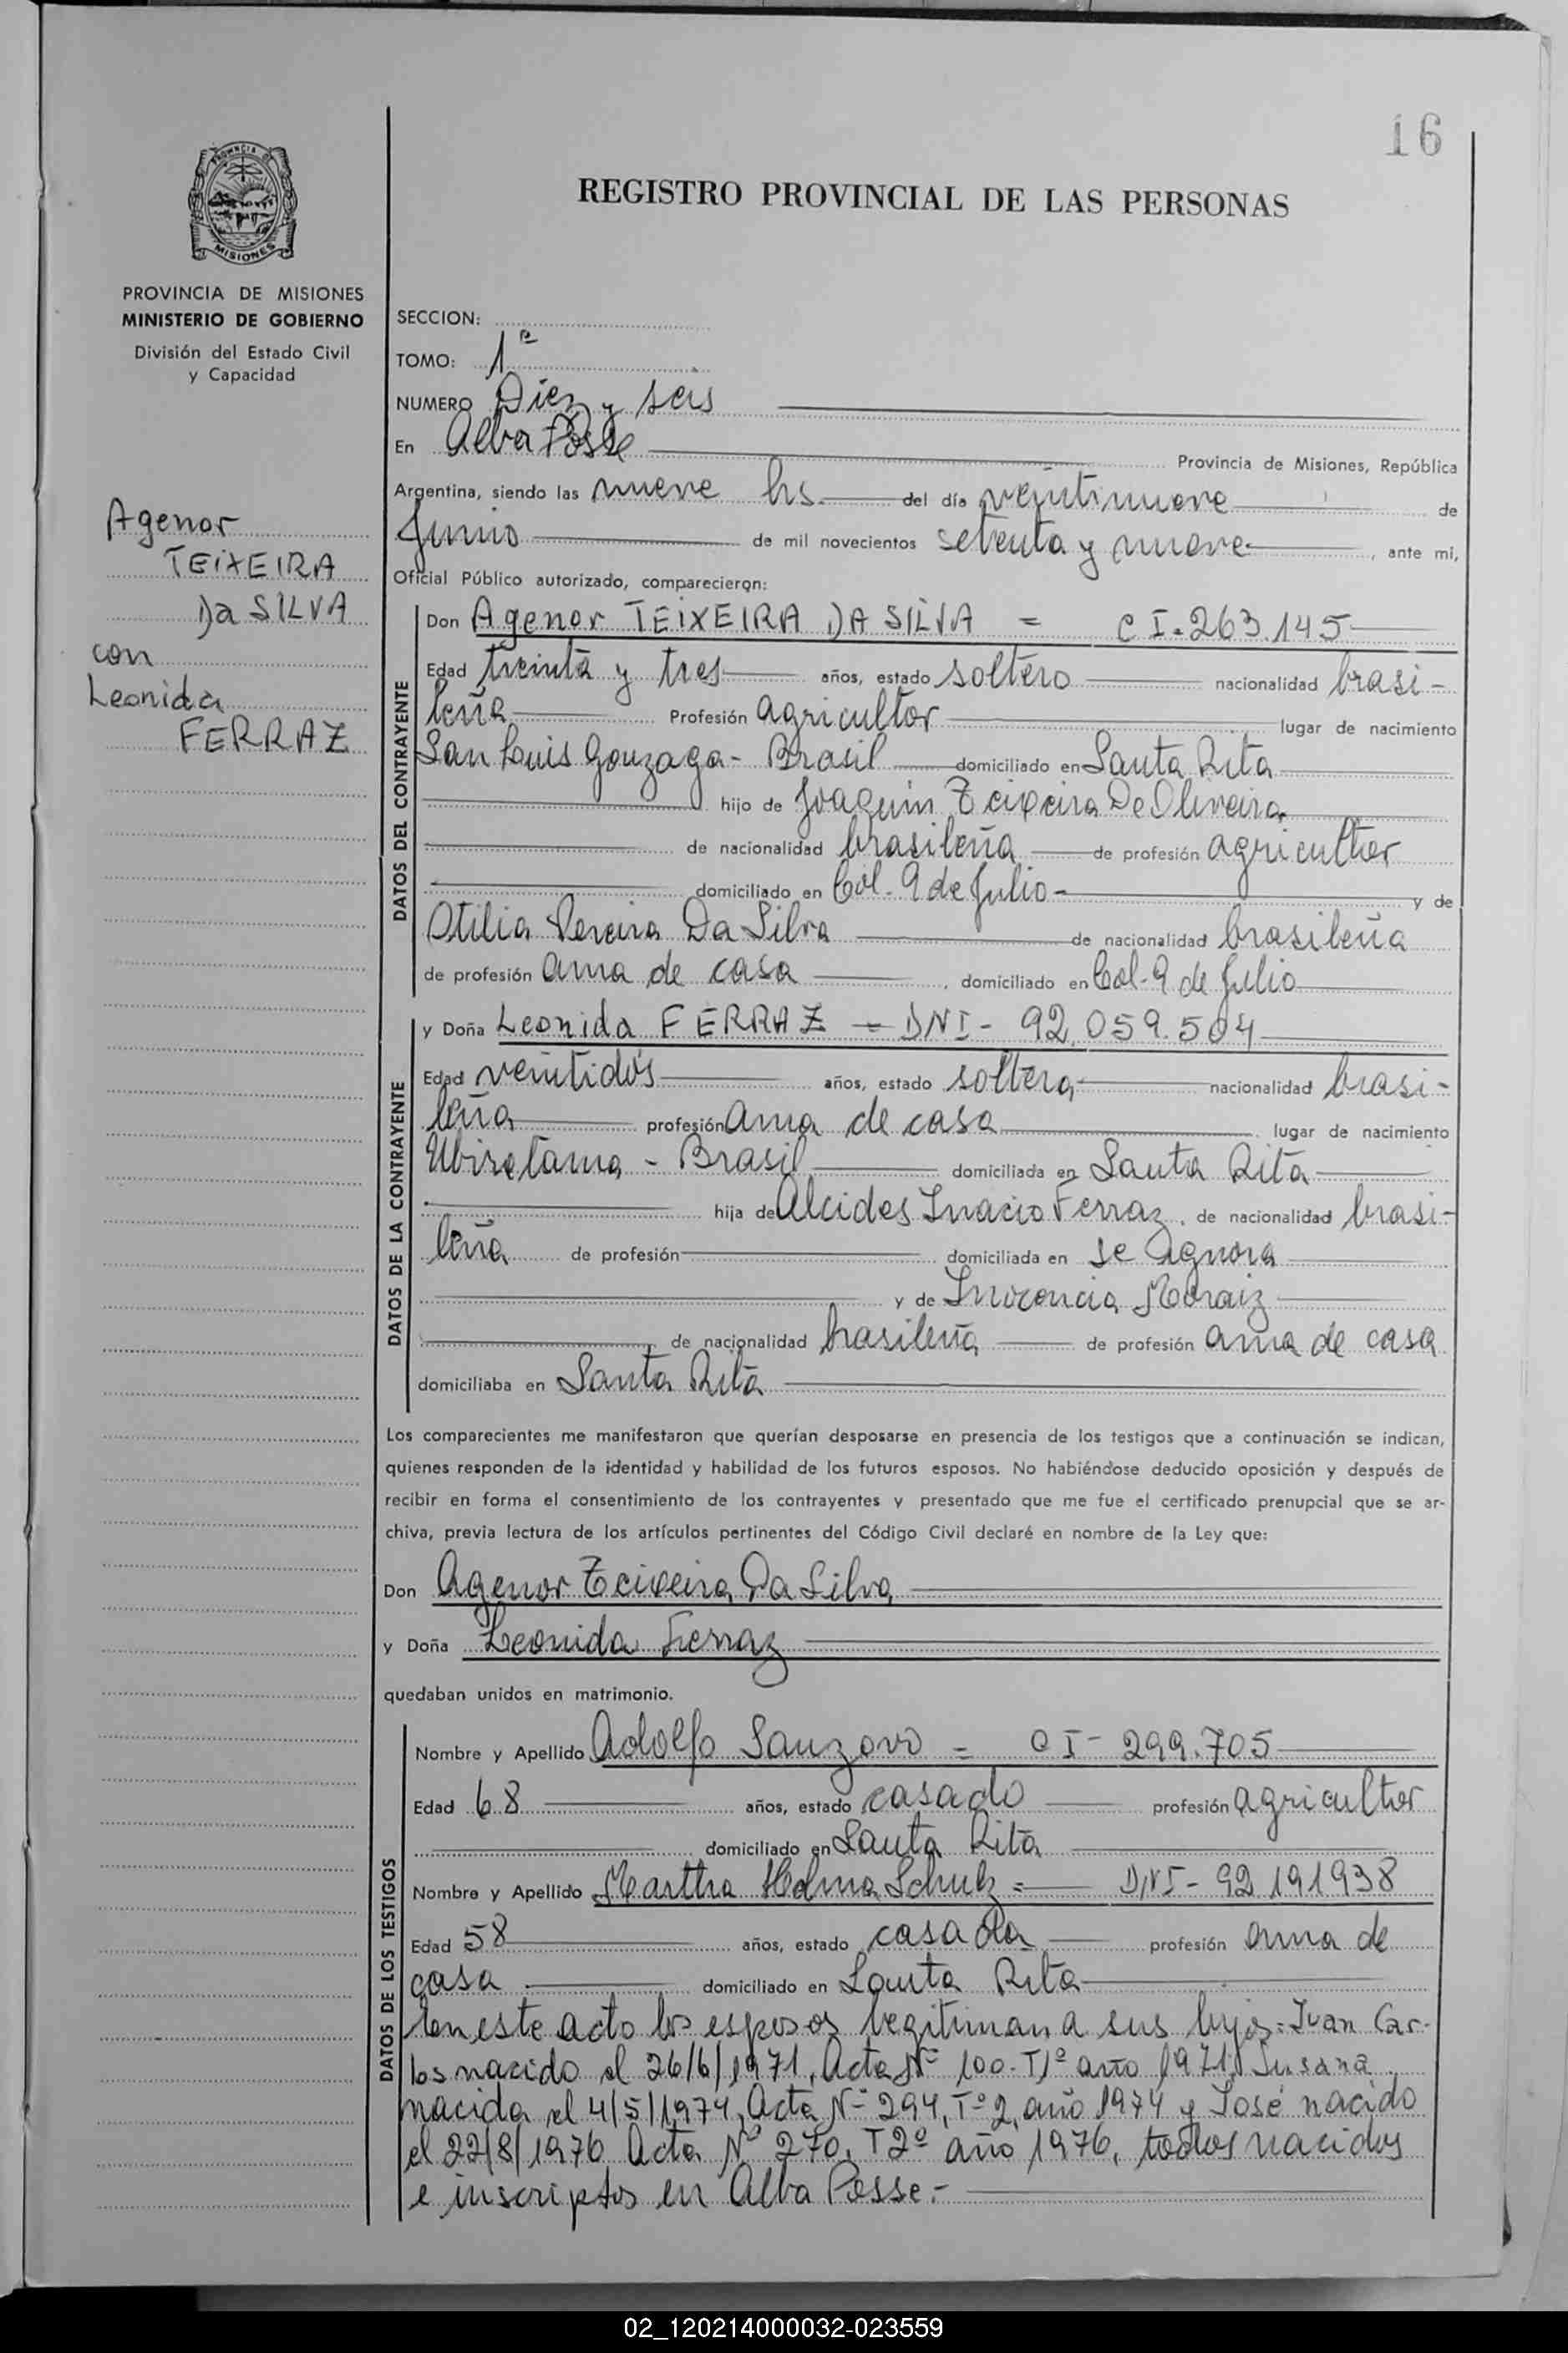 16
PROVINCIA DE
MISIONES
REGISTRO PROVINCIAL DE LAS PERSONAS
PROVINCIA DE MISIONES
MINISTERIO DE GOBIERNO
División del Estado Civil
y Capacidad
Agenor
TEIXEIRA
Da SILVA
con
Leonida
FERRAZ
SECCION:
TOMO: 1º
NUMERO Diez y seis
En Alba Posse Provincia de Misiones, República
Argentina, siendo las nueve hs. del día veintinueve de
Junio de mil novecientos setenta y nueve , ante mi,
Oficial Público autorizado, comparecieron:
DATOS DEL CONTRAYENTE
Don Agenor TEIXEIRA DA SILVA = C I. 263 145
Edad treinta y tres años, estado soltero nacionalidad brasi-
leña Profesión agricultor lugar de nacimiento
San Luis Gonzaga - Brasil domiciliado en Santa Rita
hijo de Joaquin Teixeira De Oliveira
de nacionalidad brasileña de profesión agricultor
domiciliado en Col. 9 de Julio - y de
Otilia Pereira Da Silva de nacionalidad brasileña
de profesión ama de casa , domiciliado en Col. 9 de Julio
DATOS DE LA CONTRAYENTE
y Doña Leonida FERRAZ = DNI - 92.059.504
Edad veintidós años, estado soltera nacionalidad brasi-
leña profesión ama de casa lugar de nacimiento
Ubiretama - Brasil domiciliada en Santa Rita
hija de Alcides Inacio Ferraz. de nacionalidad brasi-
leña de profesión domiciliada en se ignora
y de Inocencia Moraiz
de nacionalidad brasileña de profesión ama de casa
domiciliaba en Santa Rita
Los comparecientes me manifestaron que querían desposarse en presencia de los testigos que a continuación se indican,
quienes responden de la identidad y habilidad de los futuros esposos. No habiéndose deducido oposición y después de
recibir en forma el consentimiento de los contrayentes y presentado que me fue el certificado prenupcial que se ar-
chiva, previa lectura de los artículos pertinentes del Código Civil declaré en nombre de la Ley que:
Don Agenor Teixeira Da Silva
y Doña Leonida Ferraz
quedaban unidos en matrimonio.
DATOS DE LOS TESTIGOS
Nombre y Apellido Adolfo Sanzovo = C I - 299.705
Edad 68 años, estado casado profesión agricultor
domiciliado en Santa Rita
Nombre y Apellido Martha Helma Schulz = DNI - 92 191938
Edad 58 años, estado casada profesión ama de
casa domiciliado en Santa Rita
En este acto los esposos legitiman a sus hijos: Juan Car-
los nacido el 26/6/1971, Acta Nº 100. T1º año 1971, Susana
nacida el 4/5/1974, Acta Nº 294, Tº 2, año 1974 y José nacido
el 22/8/1976 Acta Nº 270, T2º año 1976, todos nacidos
e inscriptos en Alba Posse.-
02_120214000032-023559